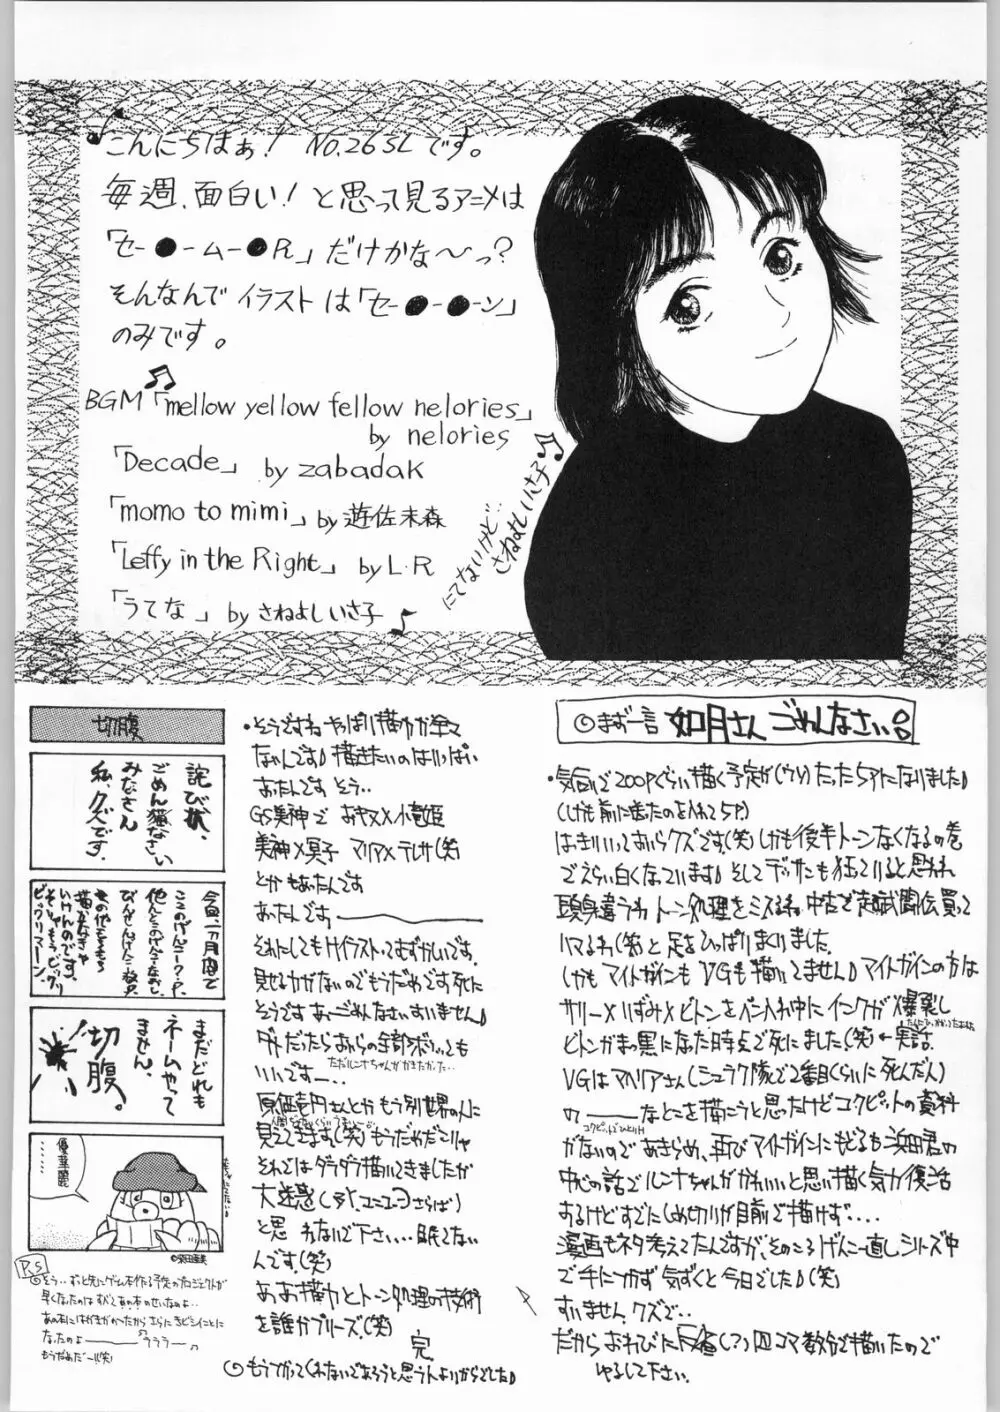 こんにちはぁ! NO.26SLです。
毎週、面白い!と思って見るアニメは
「セー●ームー●R」だけかな〜っ?
そんなんでイラストは「セー●ー●ーン」
のみです。
BGM「mellow yellow fellow nelories」
by nelories
「Decade」 by zabadak
「momo to mimi」by 遊佐未森
「Leffy in the Right」 by L・R
「うてな」by さねよしいさ子
にてないけど…
さねよしいさ子
◎まず一言 如月さん ごめんなさい
・気合いで200Pぐらい描く予定が(ウソ)たった5Pになりました♪
(しかも前に送ったのを入れて5P)
はっきりいっておいらクズです(笑)しかも後半トーンなくなるの巻
でえらい白くなっています♪そしてデッサンも狂っていると思われ
頭身違うわトーン処理をミスるわ中古で超武闘伝買って
ハマるわ(笑)と足をひっぱりまくりました。
しかもマイトガインもVGも描いてません♪マイトガインの方は
サリー×いずみ×ビトンをペン入れ中にインクが爆裂し
ビトンがまっ黒になった時点で死にました(笑)←実話
VGはマヘリアさん(シュラク隊で2番目くらいに死んだ人)
の――なとこを描こうと思ったけどコクピットの資料
コクピットでひとりH
がないのであきらめ、再びマイトガインにもどるも浜田君の
中心の話でルンナちゃんがかわいいと思い描く気力復活
あるけどすでにしめ切りが目前で描けず‥‥
漫画もネタ考えてたんですが、そのころげんこー直しシリーズ中
で手につかず気づくと今日でした♪(笑)
すいません、クズで‥
だからおわびに(?)四コマ数分で描いたので
ゆるして下さい。
・そうですねやっぱり描く力が全て
なんです♪描きたいのはいっぱい
あったんです そう‥
GS美神で おキヌ×小竜姫
美神×冥子 マリア×テレサ(笑)
とかもあったんです
あったんです――
それにしてもHイラストってむずかしいです。
見せる力がないのでもうだめです死に
そうですあーごめんなさいすいません♪
ダメだったらおいらの全部ボツっても
いいです―‥
ただルンナちゃんがかきたかった‥
原価壱円さんとかもう別世界の人に
見えてきます(笑)もうだめだこりゃ
それではダラダラ描いてきましたが
大迷惑
と思わないで下さい‥‥眠てない
んです(笑)
ああ描く力とトーン処理の技術
を誰かプリーズ(笑)
完
◎もうつかってくれないであろうと思う人よりからでした♪
切腹
詫び状、
ごめん猫なさい
みなさん
私、クズです。
今回、一ヵ月間で
ここのげんこーク・P、
他んとこのげんこーなおし、
描かなきゃ
いけんのです。
そりゃもうビックリ
ビックリマーン。
まだどれも
ネームやって
ません。
切腹。
優華麗
……
P.S
◎そう‥ずっと先にゲームを作る予定のプロジェクトが
早くなったのはすべてあの本のせいなのよ‥
あの本にはがきがのったからさらにきびしいことに
なったのよ―― うううー
もうだめだ〜!!(笑)